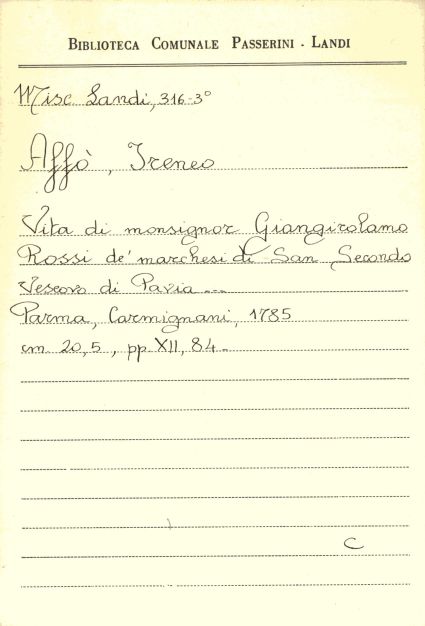 BIBLIOTECA COMUNALE PASSERINI - LANDI
Misc. Landi, 316-3°
Affò, Ireneo
Vita di monsignor Giangirolamo
Rossi de' marchesi di San Secondo
Vescovo di Pavia ...
Parma, Carmignani, 1785
cm 20,5, pp. XII, 84.
C